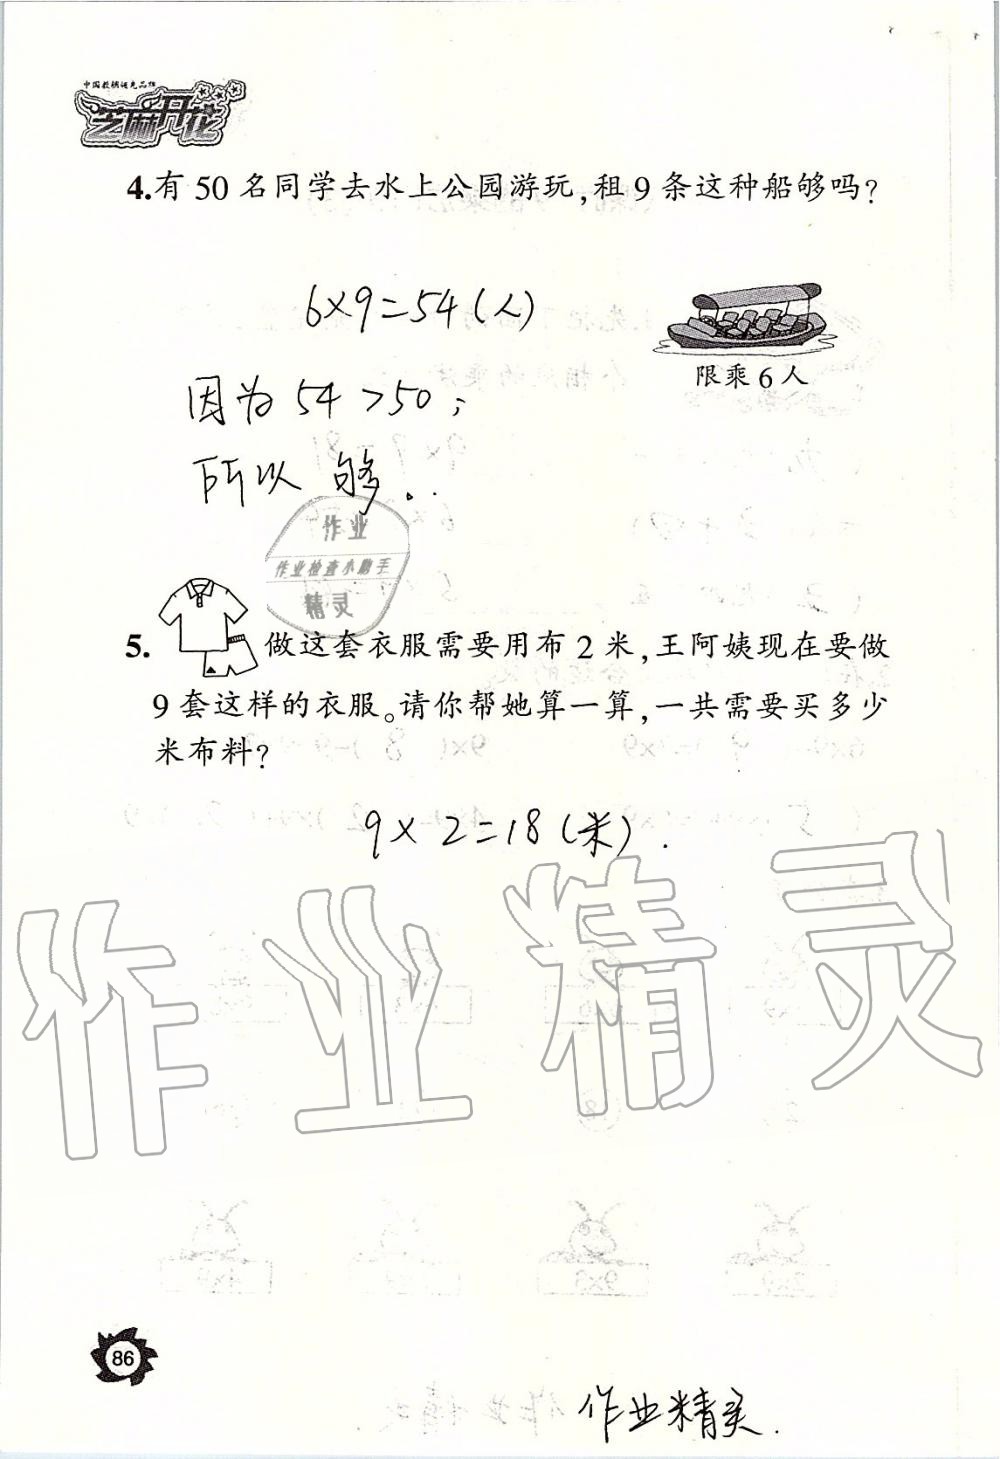 中国教辅领先品牌
芝麻开花
4.有50名同学去水上公园游玩,租9条这种船够吗?
6×9=54(人)
限乘6人
因为54>50,
所以 够.
作业
作业检查小助手
精灵
5. 做这套衣服需要用布2米,王阿姨现在要做
9套这样的衣服。请你帮她算一算,一共需要买多少
米布料?
9×2=18(米).
作业精灵
86
作业精灵.